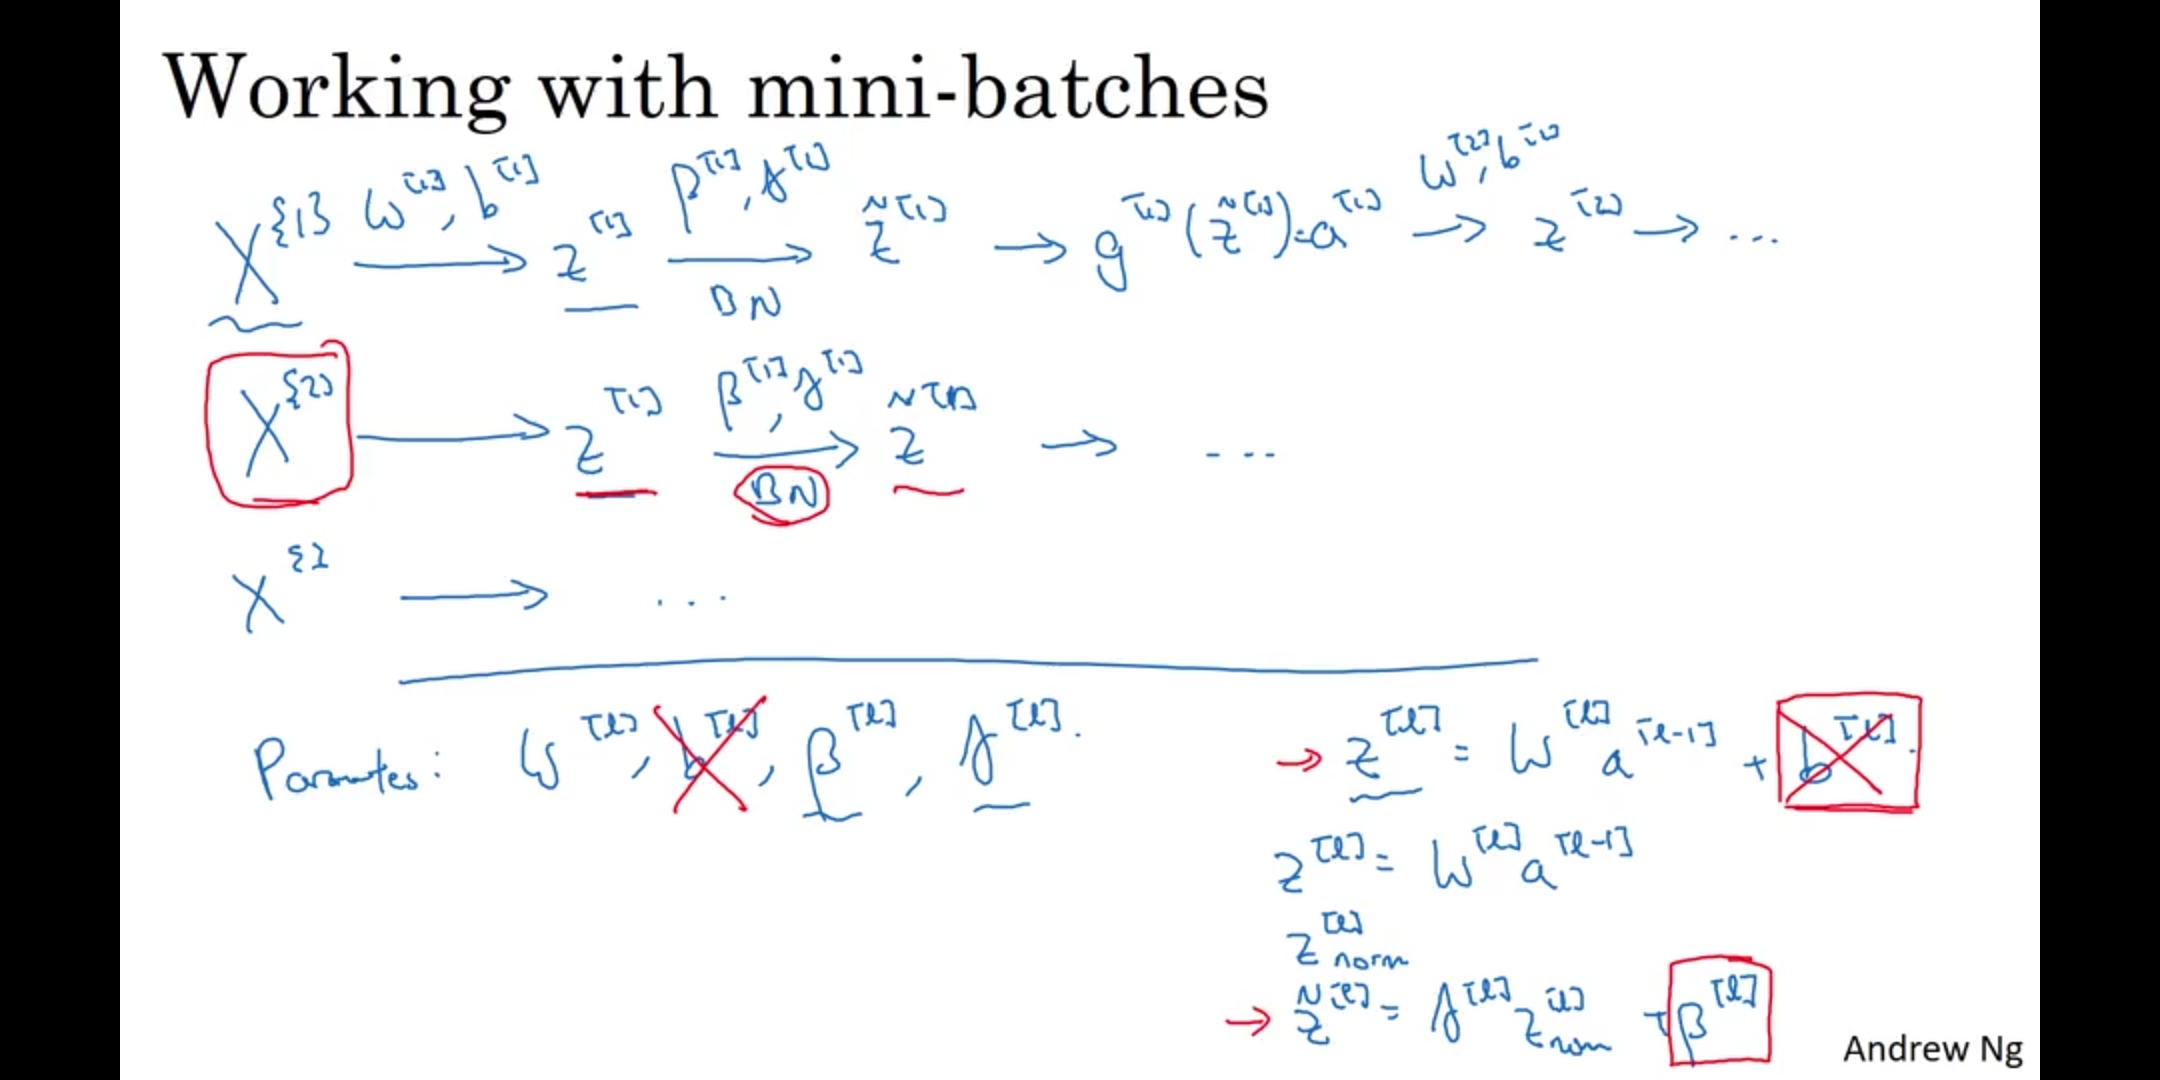 Working with mini-batches
X^{1} W^[1], b^[1] → z^[1] β^[1], γ^[1] → BN z̃^[1] → g^[1](z̃^[1]) = a^[1] W^[2], b^[2] → z^[2] → ...
X^{2} → z^[1] β^[1], γ^[1] → BN z̃^[1] → ...
X^{} → ...
Parameters: W^[l], b^[l], β^[l], γ^[l].
→ z^[l] = W^[l] a^[l-1] + b^[l].
z^[l] = W^[l] a^[l-1]
z^[l] norm
→ z̃^[l] = γ^[l] z^[l] norm + β^[l]
Andrew Ng